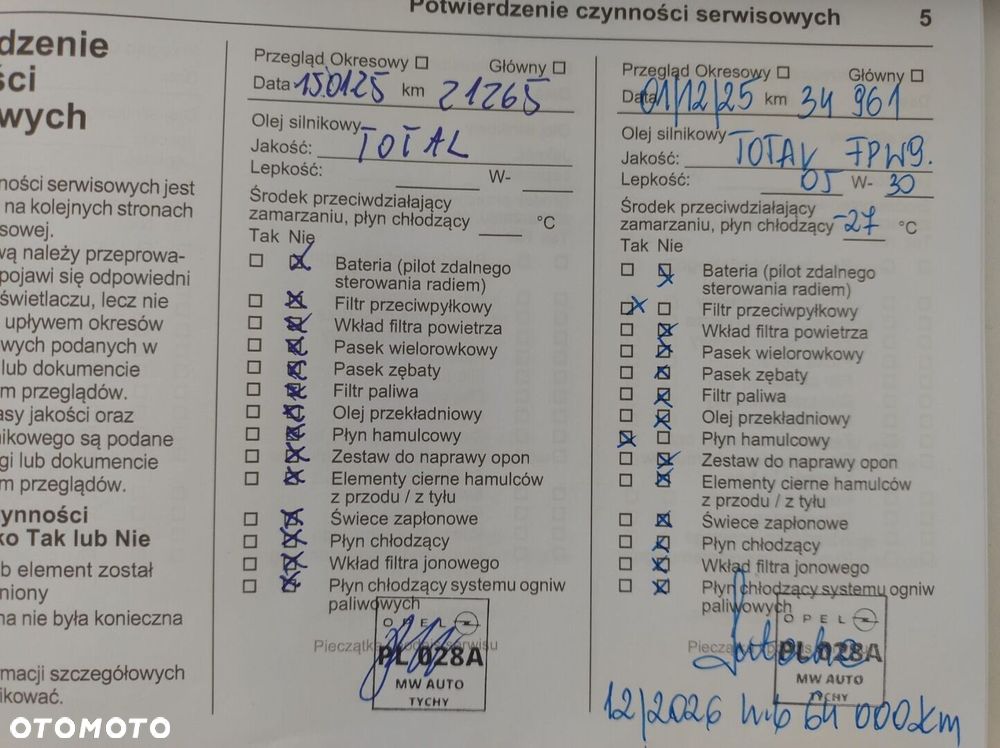 Potwierdzenie czynności serwisowych 5
dzenie
ści
wych
ności serwisowych jest
na kolejnych stronach
sowej.
wą należy przeprowa-
pojawi się odpowiedni
świetlaczu, lecz nie
upływem okresów
wych podanych w
lub dokumencie
m przeglądów.
asy jakości oraz
nikowego są podane
gi lub dokumencie
m przeglądów.
zynności
ko Tak lub Nie
b element został
niony
na nie była konieczna
macji szczegółowych
nikować.
Przegląd Okresowy Główny
Data 15.01.25 km 21265
Olej silnikowy
Jakość: TOTAL
Lepkość: W-
Środek przeciwdziałający
zamarzaniu, płyn chłodzący °C
Tak Nie
Bateria (pilot zdalnego
sterowania radiem)
Filtr przeciwpyłkowy
Wkład filtra powietrza
Pasek wielorowkowy
Pasek zębaty
Filtr paliwa
Olej przekładniowy
Płyn hamulcowy
Zestaw do naprawy opon
Elementy cierne hamulców
z przodu / z tyłu
Świece zapłonowe
Płyn chłodzący
Wkład filtra jonowego
Płyn chłodzący systemu ogniw
paliwowych
OPEL
PL 028A
MW AUTO
TYCHY
Przegląd Okresowy Główny
Data 01/12/25 km 34 961
Olej silnikowy
Jakość: TOTAL FPW9.
Lepkość: 05 W- 30
Środek przeciwdziałający
zamarzaniu, płyn chłodzący -27 °C
Tak Nie
Bateria (pilot zdalnego
sterowania radiem)
Filtr przeciwpyłkowy
Wkład filtra powietrza
Pasek wielorowkowy
Pasek zębaty
Filtr paliwa
Olej przekładniowy
Płyn hamulcowy
Zestaw do naprawy opon
Elementy cierne hamulców
z przodu / z tyłu
Świece zapłonowe
Płyn chłodzący
Wkład filtra jonowego
Płyn chłodzący systemu ogniw
paliwowych
OPEL
PL 028A
MW AUTO
TYCHY
12/2026 lub 64 000km
OTOMOTO